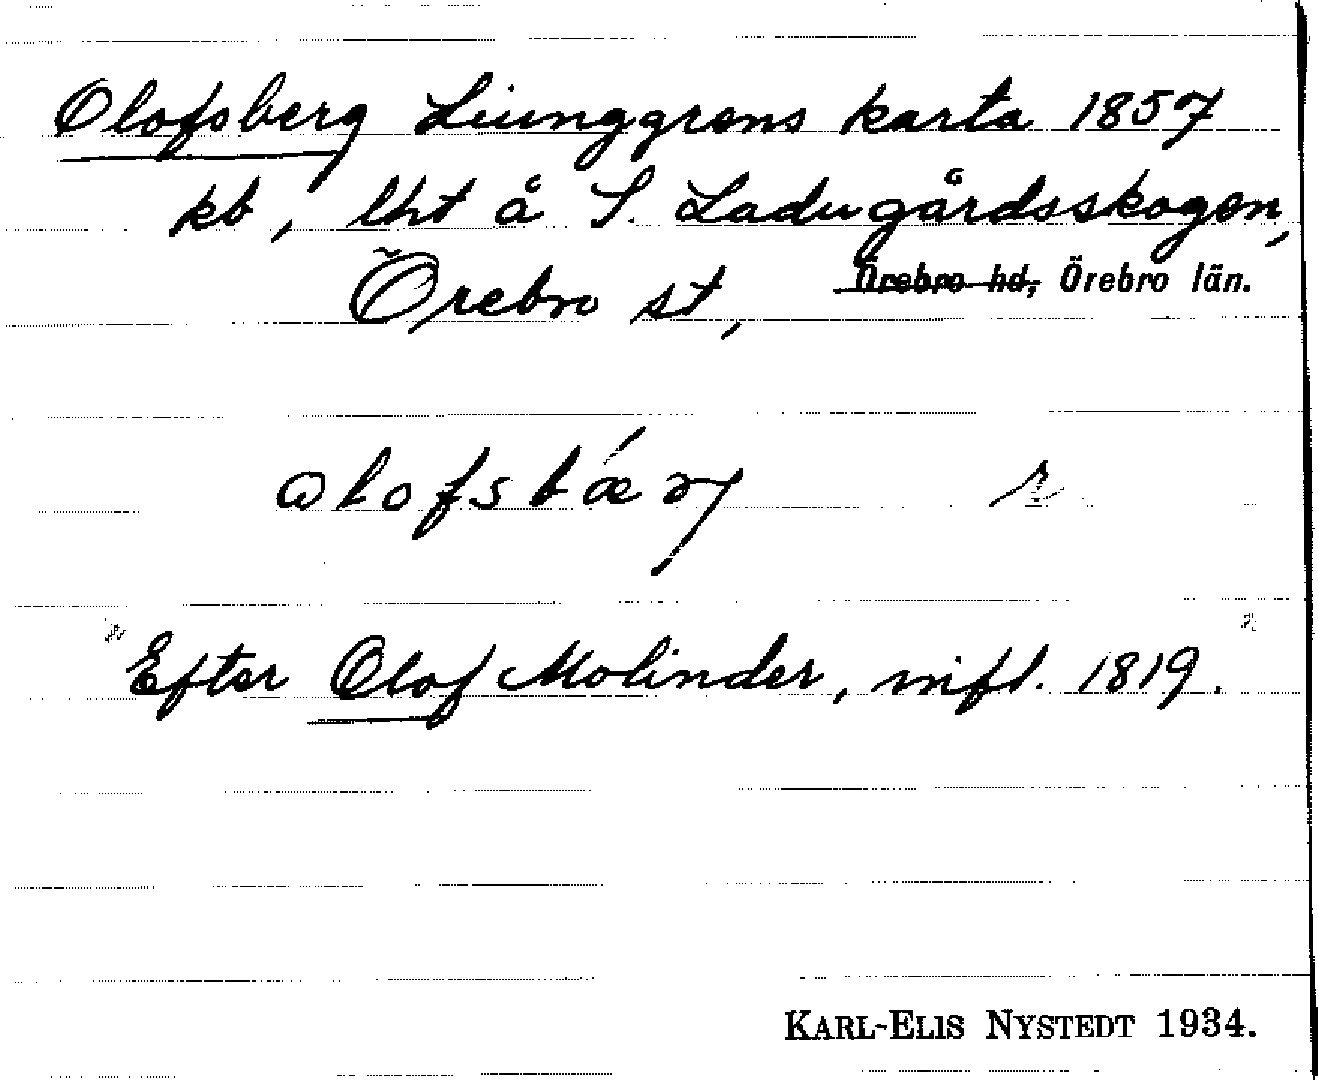 Olofsberg Liunggrens karta 1857
kb, lht å S. Ladugårdsskogen,
Örebro st, Örebro hd, Örebro län.
olofsbǽr
"Efter Olof Molinder, 1819."
KARL-ELIS NYSTEDT 1934.